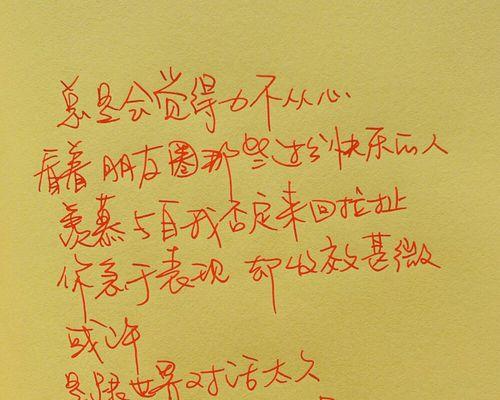 总是会觉得力不从心
看着朋友圈那些过分快乐的人
羡慕与自我否定来回拉扯
你急于表现 却收效甚微
或许
是跟世界对话太久